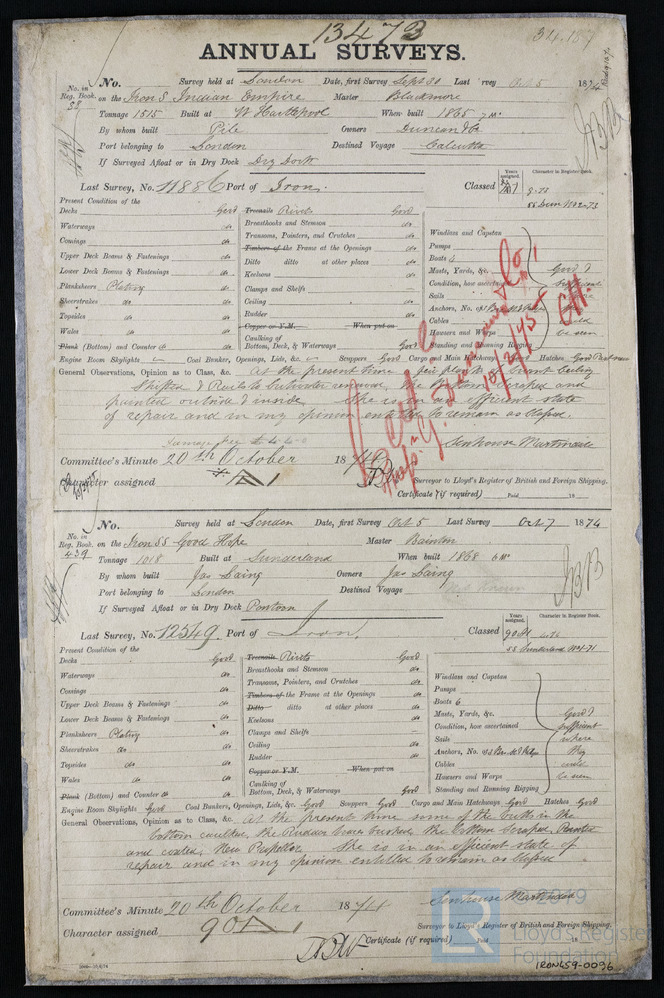 13473
ANNUAL SURVEYS.
No. in Reg. Book.
38
No. Survey held at London Date, first Survey Sept 30 Last Survey Oct 5 1874
on the Iron S. Indian Empire Master Blackmore
Tonnage 1515 Built at W Hartlepool When built 1865 7 Mo
By whom built Pile Owners Duncan & Co
Port belonging to London Destined Voyage Calcutta
If Surveyed Afloat or in Dry Dock Dry Dock
Last Survey, No. 11886 Port of Iron. Classed
Years assigned. Character in Register Book.
Present Condition of the
Decks Good Treenails Rivets Good
Waterways do Breasthooks and Stemson do Windlass and Capstan
Comings do Transoms, Pointers, and Crutches do Pumps
Upper Deck Beams & Fastenings do Timbers of the Frame at the Openings do Boats 4
Lower Deck Beams & Fastenings do Ditto ditto at other places do Masts, Yards, &c. Good &
Planksheers Plating Keelsons do Condition, how ascertained
Sheerstrakes do do Clamps and Shelfs Sails
Topsides do do Ceiling do Anchors, No. of
Wales do do Rudder do Cables
Plank (Bottom) and Counter do Copper or Y.M. When put on Hawsers and Warps be seen
Caulking of Bottom, Deck, & Waterways Good Standing and Running Rigging
Engine Room Skylights Coal Bunker, Openings, Lids, &c. Scuppers Good Cargo and Main Hatchways Hatches Good
General Observations, Opinion as to Class, &c. At the present time a few planks Ceiling
shifted & Rivets removed, the bottom scraped and
painted outside & inside. She is in an efficient state
of repair and in my opinion entitled to remain as Classed.
Senhouse Martindale
Committee's Minute 20th October 1874
Character assigned A 1
Surveyor to Lloyd's Register of British and Foreign Shipping.
Certificate (if required) Paid 18
No. in Reg. Book.
439
No. Survey held at London Date, first Survey Oct 5 Last Survey Oct 7 1874
on the Iron SS Good Hope Master Bainton
Tonnage 1018 Built at Sunderland When built 1868 6 Mo
By whom built Jas Laing Owners Jas Laing
Port belonging to London Destined Voyage Not Known
If Surveyed Afloat or in Dry Dock Pontoon
Last Survey, No. 12549 Port of Iron. Classed 90 A1
Years assigned. Character in Register Book.
SS Sunderland No 1-71
Present Condition of the
Decks Good Treenails Rivets Good
Waterways do Breasthooks and Stemson do Windlass and Capstan
Comings do Transoms, Pointers, and Crutches do Pumps
Upper Deck Beams & Fastenings do Timbers of the Frame at the Openings do Boats 6
Lower Deck Beams & Fastenings do Ditto ditto at other places do Masts, Yards, &c. Good &
Planksheers Plating Keelsons do Condition, how ascertained sufficient
Sheerstrakes do do Clamps and Shelfs Sails where
Topsides do do Ceiling do Anchors, No. of they
Wales do do Rudder do Cables could
Plank (Bottom) and Counter do Copper or Y.M. When put on Hawsers and Warps be seen
Caulking of Bottom, Deck, & Waterways Good Standing and Running Rigging
Engine Room Skylights Good Coal Bunkers, Openings, Lids, &c. Good Scuppers Good Cargo and Main Hatchways Good Hatches Good
General Observations, Opinion as to Class, &c. At the present time some of the butts in the
bottom caulked, the Rudder braces bushed, the bottom scraped, Painted
and coated, New Propeller She is in an efficient state of
repair and in my opinion entitled to remain as Classed
Senhouse Martindale
Committee's Minute 20th October 1874
Character assigned 90 A 1
Surveyor to Lloyd's Register of British and Foreign Shipping.
Certificate (if required) Paid
Lloyd's Register
Foundation
IRON459-0096